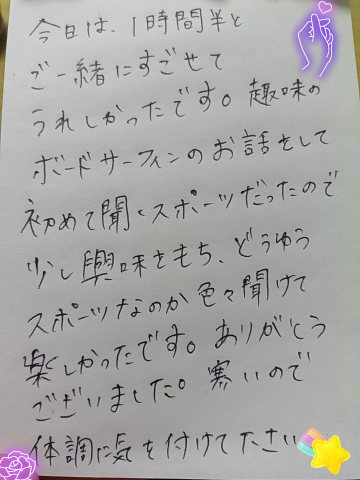 今日は、1時間半と
ご一緒にすごせて
うれしかったです。趣味の
ボードサーフィンのお話をして
初めて聞くスポーツだったので
少し興味をもち、どうゆう
スポーツなのか色々聞けて
楽しかったです。ありがとう
ございました。寒いので
体調に気を付けて下さい